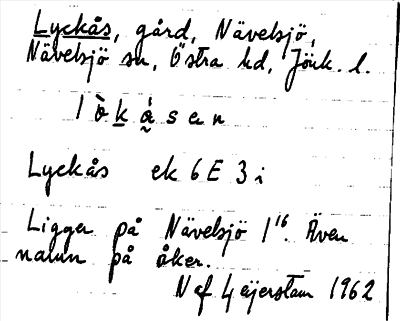 Lyckås, gård, Nävelsjö,
Nävelsjö sn, Östra hd, Jönk. l.
l ò k á s e n
Lyckås ek 6 E 3 i
Ligger på Nävelsjö 1¹⁶. Även
namn på åker.
N af Geijerstam 1962